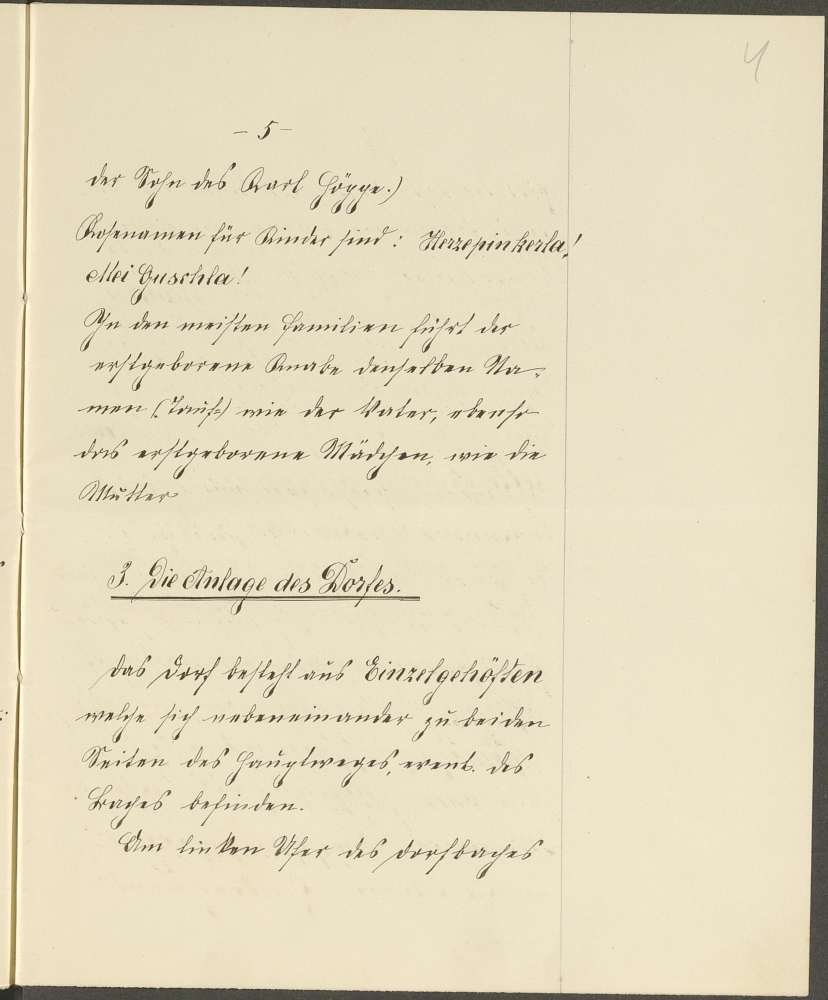 4
- 5 -
der Sohn des Karl Höppe.)
Kosenamen für Kinder sind: Herzepinkerla!
Mei Guschla!
In den meisten Familien führt der
erstgeborene Knabe denselben Na-
men (Tauf-) wie der Vater, ebenso
das erstgeborene Mädchen, wie die
Mutter
3. Die Anlage des Dorfes.
Das Dorf besteht aus Einzelgehöften
welche sich nebeneinander zu beiden
Seiten des Hauptweges, event. des
Baches befinden.
Am linken Ufer des Dorfbaches